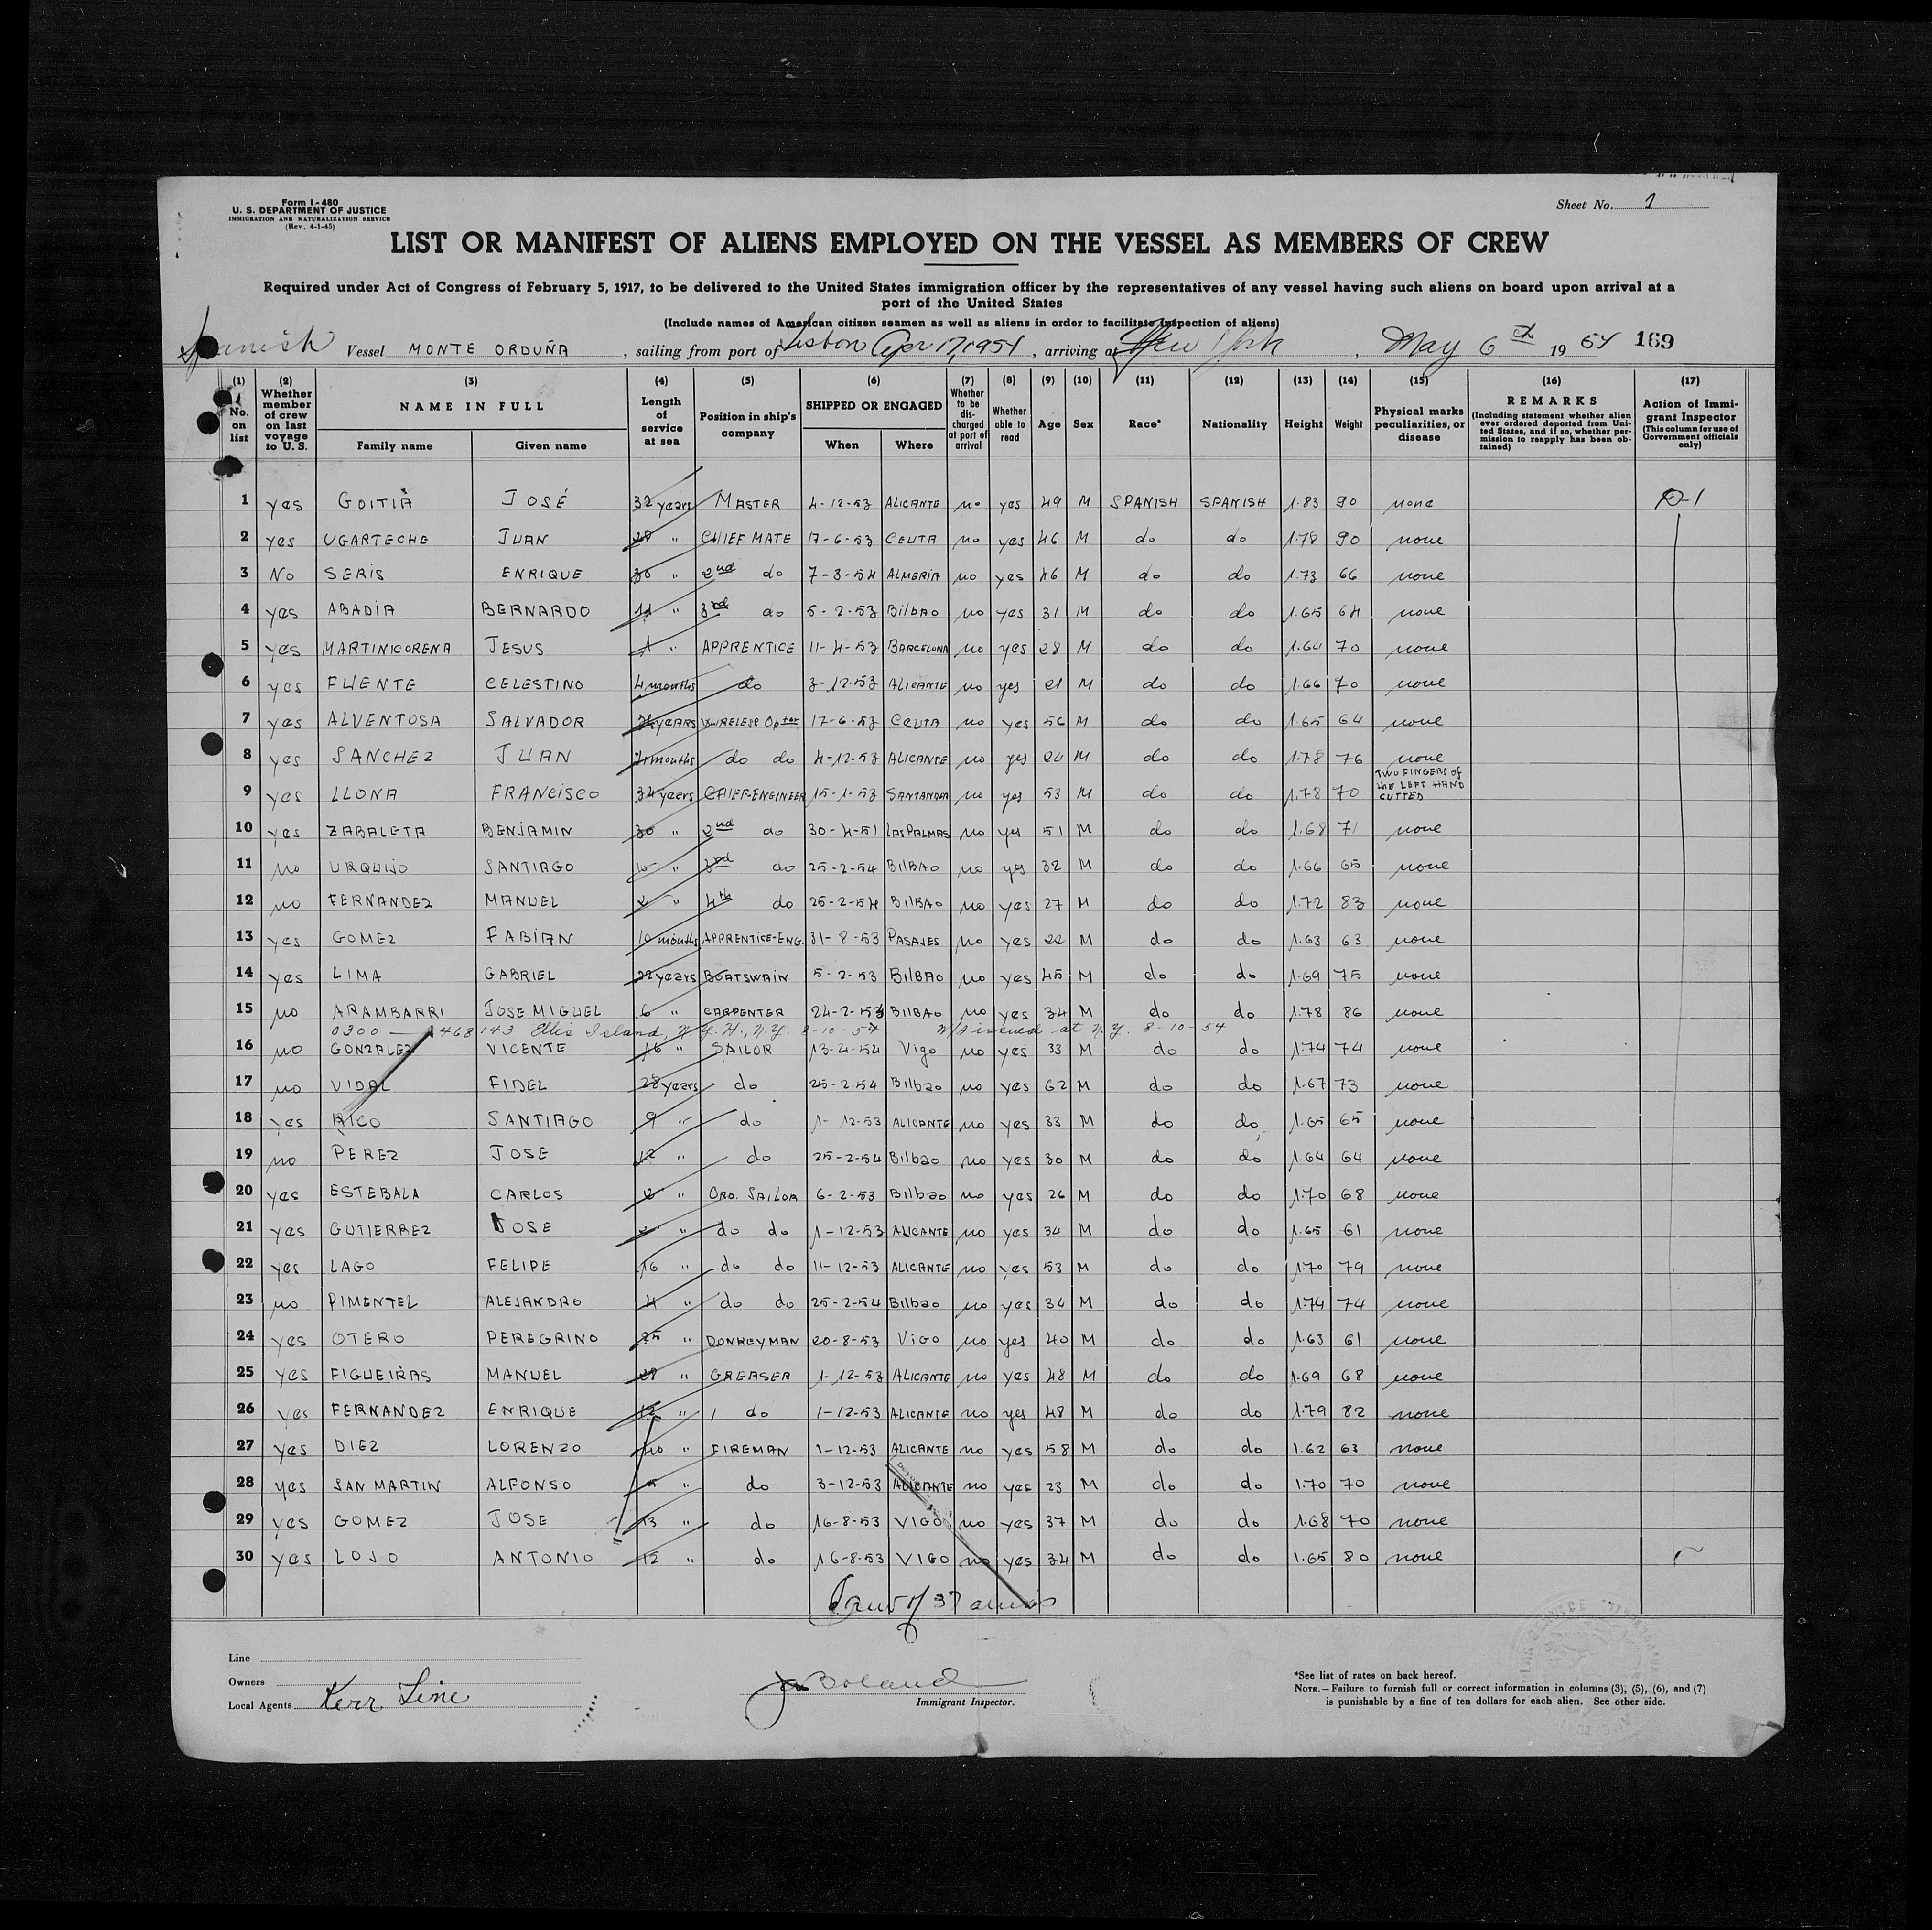 Form I-480
U. S. DEPARTMENT OF JUSTICE
IMMIGRATION AND NATURALIZATION SERVICE
(Rev. 4-1-45)
Sheet No. 1
LIST OR MANIFEST OF ALIENS EMPLOYED ON THE VESSEL AS MEMBERS OF CREW
Required under Act of Congress of February 5, 1917, to be delivered to the United States immigration officer by the representatives of any vessel having such aliens on board upon arrival at a
port of the United States
(Include names of American citizen seamen as well as aliens in order to facilitate inspection of aliens)
Spanish Vessel MONTE ORDUÑA, sailing from port of Lisbon Apr 17, 1954, arriving at New York, May 6th 1954 169
(1) No. on list (2) Whether member of crew on last voyage to U. S. (3) NAME IN FULL Family name Given name (4) Length of service at sea (5) Position in ship's company (6) SHIPPED OR ENGAGED When Where (7) Whether to be discharged at port of arrival (8) Whether able to read (9) Age (10) Sex (11) Race* (12) Nationality (13) Height (14) Weight (15) Physical marks peculiarities, or disease (16) REMARKS (Including statement whether alien ever ordered deported from United States, and if so, whether permission to reapply has been obtained) (17) Action of Immigrant Inspector (This column for use of Government officials only)
1 yes GOITIA JOSÉ 32 years MASTER 4-12-53 ALICANTE no yes 49 M SPANISH SPANISH 1.83 90 none D-1
2 yes UGARTECHE JUAN 28 " CHIEF MATE 17-6-53 CEUTA no yes 46 M do do 1.78 90 none
3 No SERIS ENRIQUE 30 " 2nd do 7-3-54 ALMERIA no yes 46 M do do 1.73 66 none
4 yes ABADIA BERNARDO 11 " 3rd do 5-2-53 BilBAO no yes 31 M do do 1.65 64 none
5 yes MARTINICORENA JESUS 1 " APPRENTICE 11-4-53 BARCELONA no yes 28 M do do 1.64 70 none
6 yes FUENTE CELESTINO 4 months do 3-12-53 ALICANTE no yes 21 M do do 1.66 70 none
7 yes ALVENTOSA SALVADOR years WIRELESS Opter 17-6-53 CEUTA no yes 56 M do do 1.65 64 none
8 yes SANCHEZ JUAN months do do 4-12-53 ALICANTE no yes 20 M do do 1.78 76 none
9 yes LLONA FRANCISCO 34 years CHIEF-ENGINEER 15-1-53 SANTANDER no yes 53 M do do 1.78 70 TWO FINGERS of the LEFT HAND CUTTED
10 yes ZABALETA BENJAMIN 30 " 2nd do 30-4-51 LAS PALMAS no yes 51 M do do 1.68 71 none
11 no URQUIJO SANTIAGO 10 " 3rd do 25-2-54 BilBAO no yes 32 M do do 1.66 65 none
12 no FERNANDEZ MANUEL 2 " 4th do 25-2-54 BilBAO no yes 27 M do do 1.72 83 none
13 yes GOMEZ FABIAN 10 months APPRENTICE-ENG. 31-8-53 PASAJES no yes 22 M do do 1.63 63 none
14 yes LIMA GABRIEL 22 years BOATSWAIN 5-2-53 BilBAO no yes 45 M do do 1.69 75 none
15 no ARAMBARRI JOSE MIGUEL 6 " CARPENTER 24-2-53 BilBAO no yes 34 M do do 1.78 86 none
0300 — 468143 Ellis Island, N.Y.H., N.Y. 8-10-54 W/A issued at N.Y. 8-10-54
16 no GONZALEZ VICENTE 16 " SAILOR 13-4-54 Vigo no yes 33 M do do 1.74 74 none
17 no VIDAL FIDEL 28 years do 25-2-54 Bilbao no yes 62 M do do 1.67 73 none
18 yes RICO SANTIAGO 9 " do 1-12-53 ALICANTE no yes 33 M do do 1.65 65 none
19 no PEREZ JOSE 12 " do 25-2-54 Bilbao no yes 30 M do do 1.64 64 none
20 yes ESTEBALA CARLOS " ORD. SAILOR 6-2-53 Bilbao no yes 26 M do do 1.70 68 none
21 yes GUTIERREZ JOSE " do do 1-12-53 ALICANTE no yes 34 M do do 1.65 61 none
22 yes LAGO FELIPE 16 " do do 11-12-53 ALICANTE no yes 53 M do do 1.70 79 none
23 no PIMENTEL ALEJANDRO 4 " do do 25-2-54 Bilbao no yes 34 M do do 1.74 74 none
24 yes OTERO PEREGRINO 25 " DONKEYMAN 20-8-53 ViGO no yes 40 M do do 1.63 61 none
25 yes FIGUEIRAS MANUEL 28 " GREASER 1-12-53 ALICANTE no yes 48 M do do 1.69 68 none
26 yes FERNANDEZ ENRIQUE 12 " do 1-12-53 ALICANTE no yes 48 M do do 1.79 82 none
27 yes DIEZ LORENZO " FIREMAN 1-12-53 ALICANTE no yes 58 M do do 1.62 63 none
28 yes SAN MARTIN ALFONSO " do 3-12-53 ALICANTE no yes 23 M do do 1.70 70 none
29 yes GOMEZ JOSE 13 " do 16-8-53 VIGO no yes 37 M do do 1.68 70 none
30 yes LOJO ANTONIO 12 " do 16-8-53 VIGO no yes 34 M do do 1.65 80 none
37 aliens
Line
Owners
Local Agents Kerr Line
Boland
Immigrant Inspector.
*See list of rates on back hereof.
NOTE.—Failure to furnish full or correct information in columns (3), (5), (6), and (7)
is punishable by a fine of ten dollars for each alien. See other side.